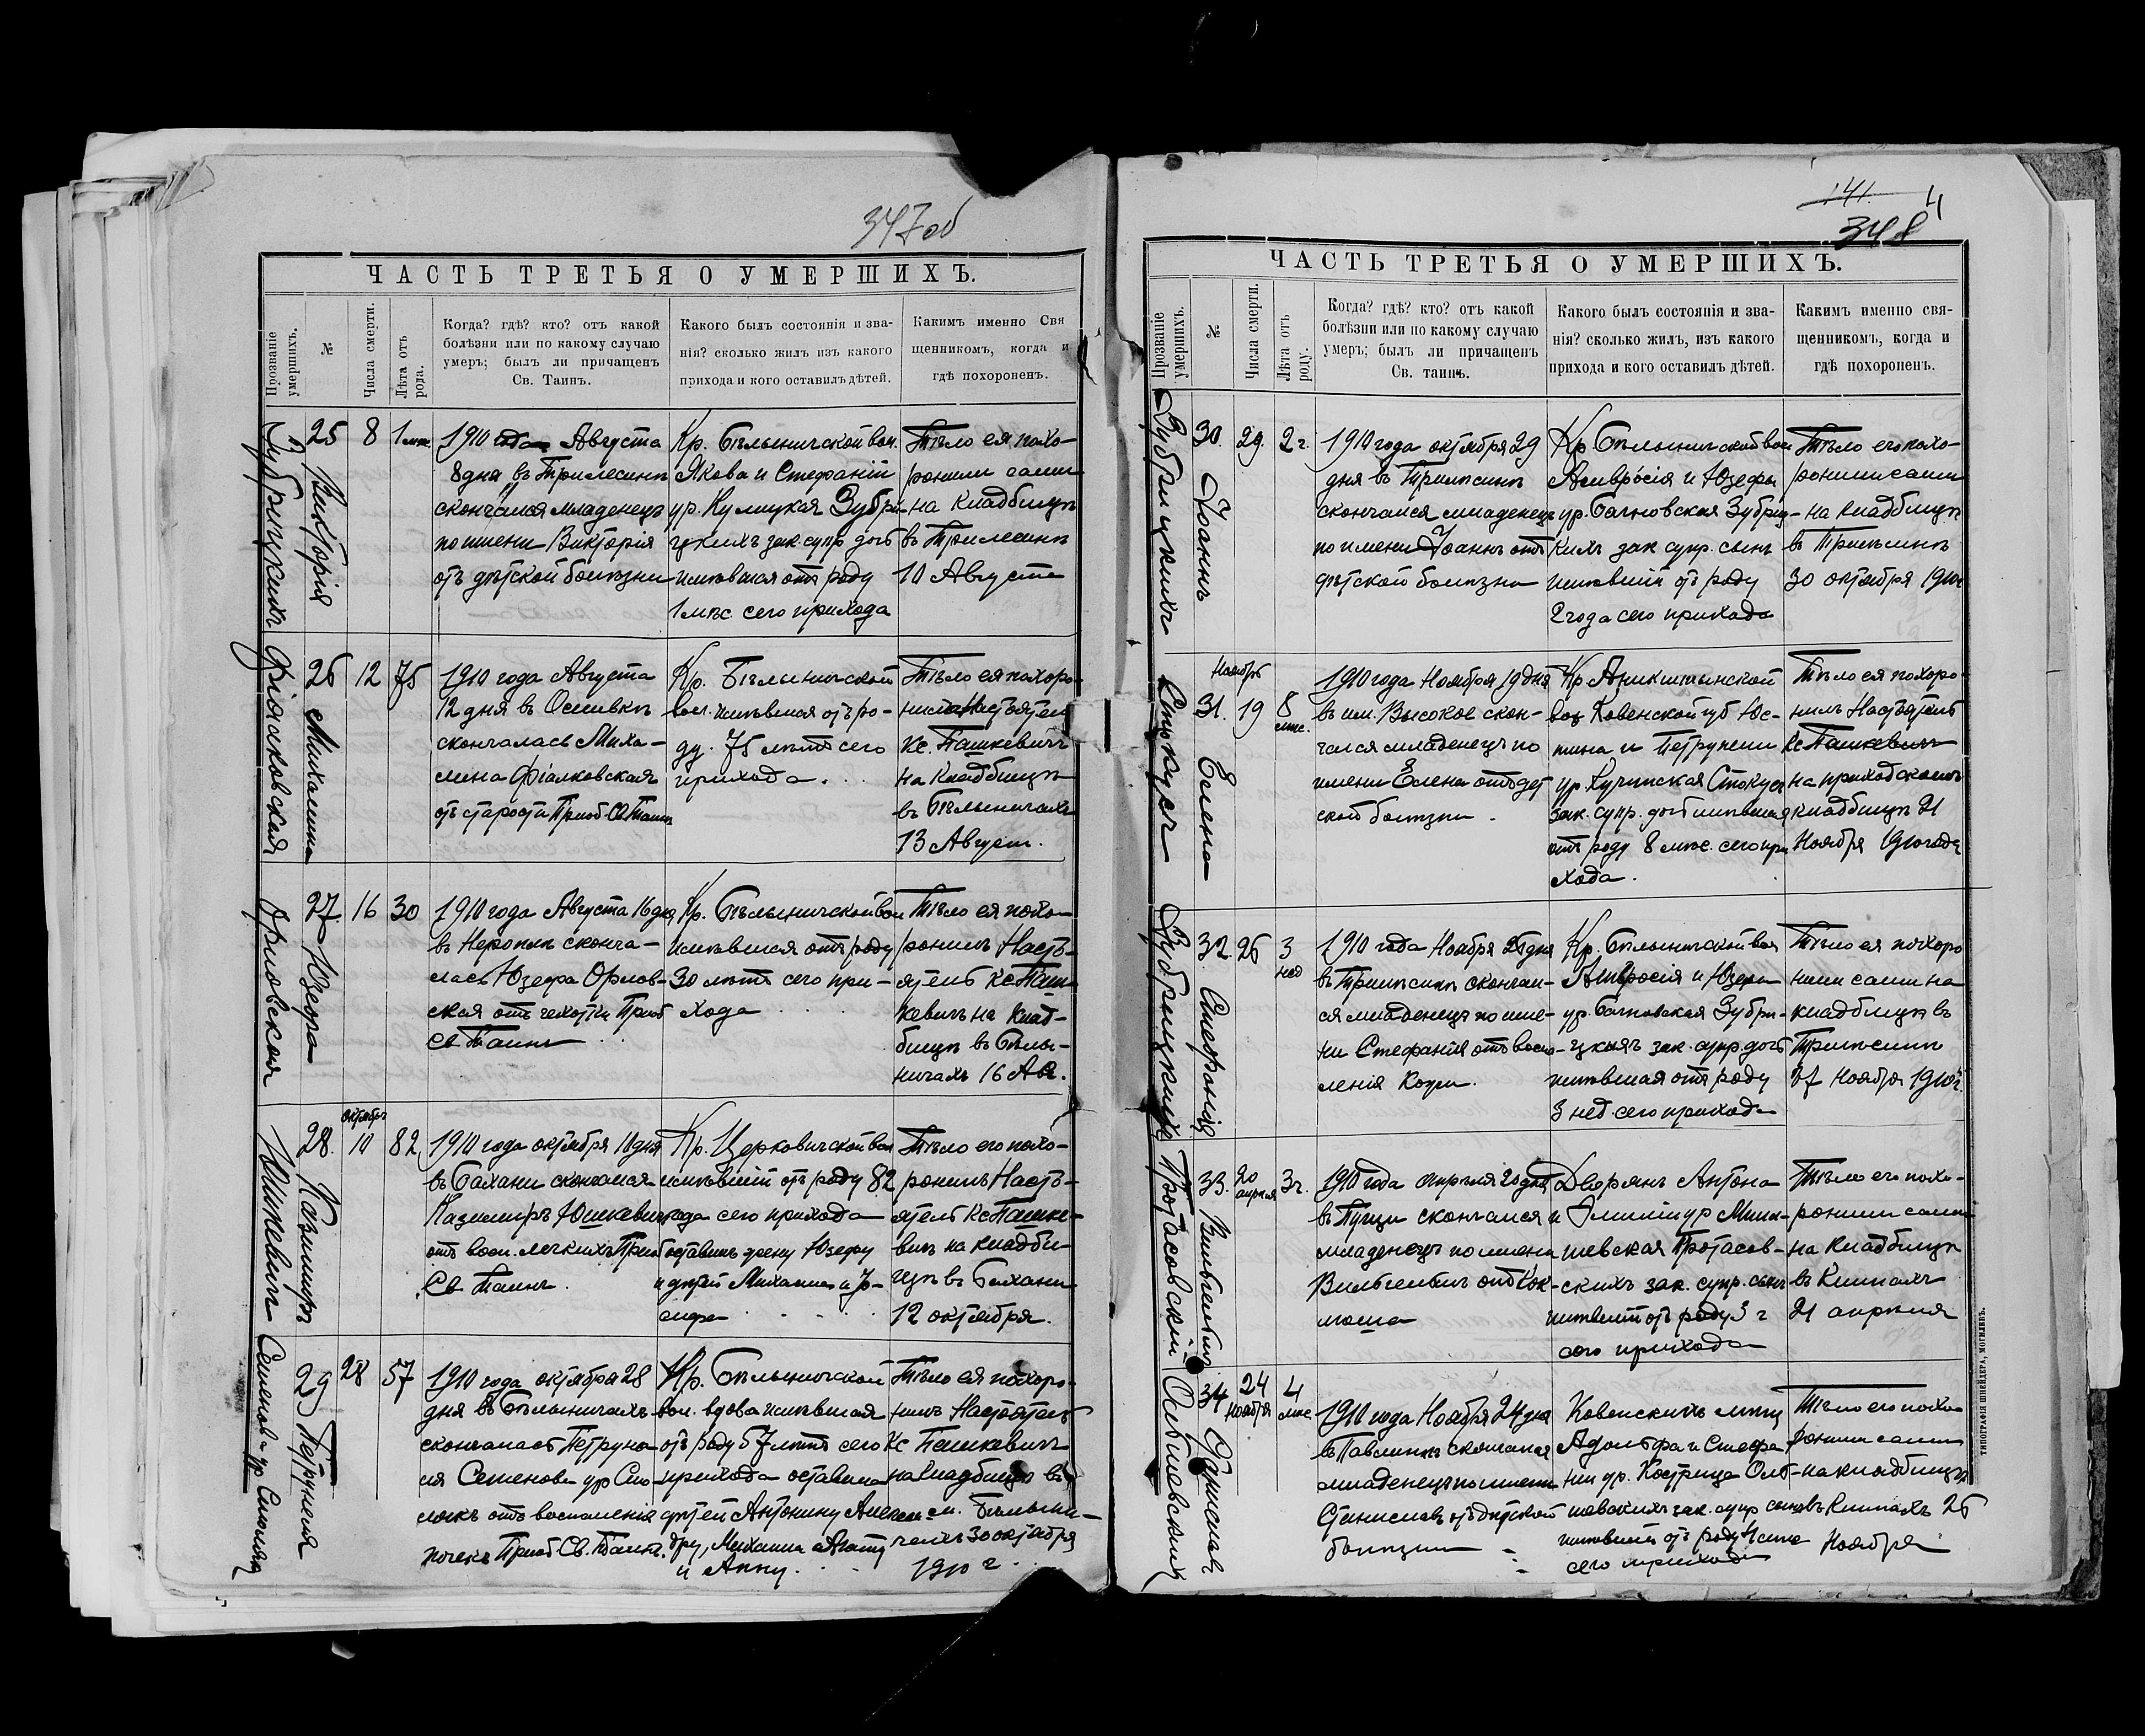 347 об
ЧАСТЬ ТРЕТЬЯ О УМЕРШИХЪ.
Прозваніе умершихъ.
№
Числа смерти.
Лѣта отъ рода.
Когда? гдѣ? кто? отъ какой
болѣзни или по какому случаю
умеръ; былъ ли причащенъ
Св. Таинъ.
Какого былъ состоянія и зва-
нія? сколько жилъ изъ какого
прихода и кого оставилъ дѣтей.
Какимъ именно Свя
щенникомъ, когда и
гдѣ похороненъ.
Зубрицкихъ
25
Викторія
8
1 мѣс.
1910 года Августа
8 дня въ Трилесинѣ
скончался младенецъ
по имени Викторія
отъ дѣтской болѣзни
Кр. Бѣлыничской вол.
Якова и Стефаніи
ур. Кулицкая Зубри-
цкихъ зак. супр. дочь
имѣвшая отъ роду
1 мѣс. сего прихода
Тѣло ея похо-
ронили сами
на кладбищѣ
въ Трилесинѣ
10 Августа
Фіалковская
26
Михалина
12
75
1910 года Августа
12 дня въ Осливкѣ
скончалась Миха-
лина Фіалковская
отъ старости Приоб. Св. Таинъ
Кр. Бѣлыничской
вол. имѣвшая отъ ро-
ду 75 лѣтъ сего
прихода.
Тѣло ея похоро-
нилъ Настоятель
Кс. Пашкевичъ
на Кладбищѣ
въ Бѣлыничахъ
13 Август.
Орловская
27
Юзефа
16
30
1910 года Августа 16 дня
въ Неропли сконча-
лась Юзефа Орлов-
ская отъ чехотки Приоб
Св Таинъ
Кр. Бѣлыничской вол
имѣвшая отъ роду
30 лѣтъ сего при-
хода
Тѣло ея похо-
ронилъ Насто-
ятель Кс Паш-
кевичъ на Клад-
бищѣ въ Бѣлы-
ничахъ 16 Авг.
Юшкевичъ
28.
Казимиръ
октябрь
10
82
1910 года октября 10 дня
въ Бахани скончался
Казимиръ Юшкевичъ
отъ восп. легкихъ Приоб
Св Таинъ.
Кр. Церковичской вол
имѣвшій отъ роду 82
года сего прихода
оставилъ жену Юзефу
и дѣтей Михаила и Іо-
сифа
Тѣло его похо-
ронилъ Насто-
ятель Кс Пашке-
вичъ на кладби-
щѣ въ Бахани
12 октября.
Семенова ур Смолякъ
29
Петрунеля
28
57
1910 года октября 28
дня въ Бѣлыничахъ
скончалась Петруне-
ля Семенова ур Смо-
лякъ отъ воспаленія
почекъ Приоб Св. Таинъ.
Кр. Бѣлыничской
вол. вдова имѣвшая
отъ роду 57 лѣтъ сего
прихода оставила
дѣтей Антонину Алексан-
дру, Михаила Агату
и Анну.
Тѣло ея похоро-
нилъ Настоятель
Кс Пашкевичъ
на Кладбищѣ въ
м. Бѣлыни-
чахъ 30 октября
1910 г.
141.
348
4
ЧАСТЬ ТРЕТЬЯ О УМЕРШИХЪ.
Прозваніе умершихъ.
№
Числа смерти.
Лѣта отъ роду.
Когда? гдѣ? кто? отъ какой
болѣзни или по какому случаю
умеръ; былъ ли причащенъ
Св. таинъ.
Какого былъ состоянія и зва-
нія? сколько жилъ, изъ какого
прихода и кого оставилъ дѣтей.
Какимъ именно свя-
щенникомъ, когда и
гдѣ похороненъ.
Зубрицкихъ
30.
Іоаннъ
29.
2 г.
1910 года октября 29
дня въ Трилѣсинѣ
скончался младенецъ
по имени Іоаннъ отъ
дѣтской болѣзни
Кр Бѣлыничской вол
Амвросія и Юзефы
ур. Зубриц-
кихъ зак супр. сынъ
имѣвшій отъ роду
2 года сего прихода
Тѣло его похо-
ронили сами
на кладбищѣ
въ Трилѣсинѣ
30 октября 1910 г
Стокусъ
Ноябрь
31.
Елена
19
8
мѣс.
1910 года Ноября 19 дня
въ им. Высокое скон-
чался младенецъ по
имени Елена отъ дет
ской болѣзни.
Кр Аникштынской
вол Ковенской губ Юс-
тина и Петрунели
ур. Стокусъ
зак. супр. дочь имѣвшая
отъ роду 8 мѣс. сего при
хода.
Тѣло ея похоро-
нилъ Настоятель
Кс Пашкевичъ
на приходскомъ
кладбищѣ 21
Ноября 1910 года
Зубрицкихъ
32.
Стефанія
26
3
нед
1910 года Ноября 26 дня
въ Трилѣсинѣ скончал-
ся младенецъ по име-
ни Стефанія отъ воспа-
ленія кожи.
Кр. Бѣлыничской вол
Амвросія и Юзефы
ур. Зубри-
цкихъ зак. супр дочь
имѣвшая отъ роду
3 нед. сего прихода
Тѣло ея похоро
нили сами на
кладбищѣ въ
Трилѣсинѣ
27 Ноября 1910 г.
Протасовскій
33.
Вильгельмъ
20
апрѣля
3 г.
1910 года апрѣля 20 дня
въ Пущи скончался
младенецъ по имени
Вильгельмъ отъ Кок-
люша
Дворянъ Антона
и Эмиліи ур
Протасов-
скихъ зак. супр. сынъ
имѣвшій отъ роду 3 г
сего прихода
Тѣло его похо-
ронили сами
на кладбищѣ
въ Клипахъ
21 апрѣля
Ольшевскихъ
34
24
ноября
4
мѣс.
1910 года Ноября 24 дня
скончался
младенецъ по имени
Станиславъ отъ дѣтской
болѣзни
Ковенскихъ мѣщ
Адольфа и Стефа
ніи ур. Кострица Оль-
шевскихъ зак. супр сынъ
имѣвшій отъ роду 4 мѣс
сего прихода
Тѣло его похо
ронили сами
на кладбищѣ
въ Клипахъ 26
Ноября
ТИПОГРАФІЯ ШНЕЙДЕРА, МОГИЛЕВЪ.